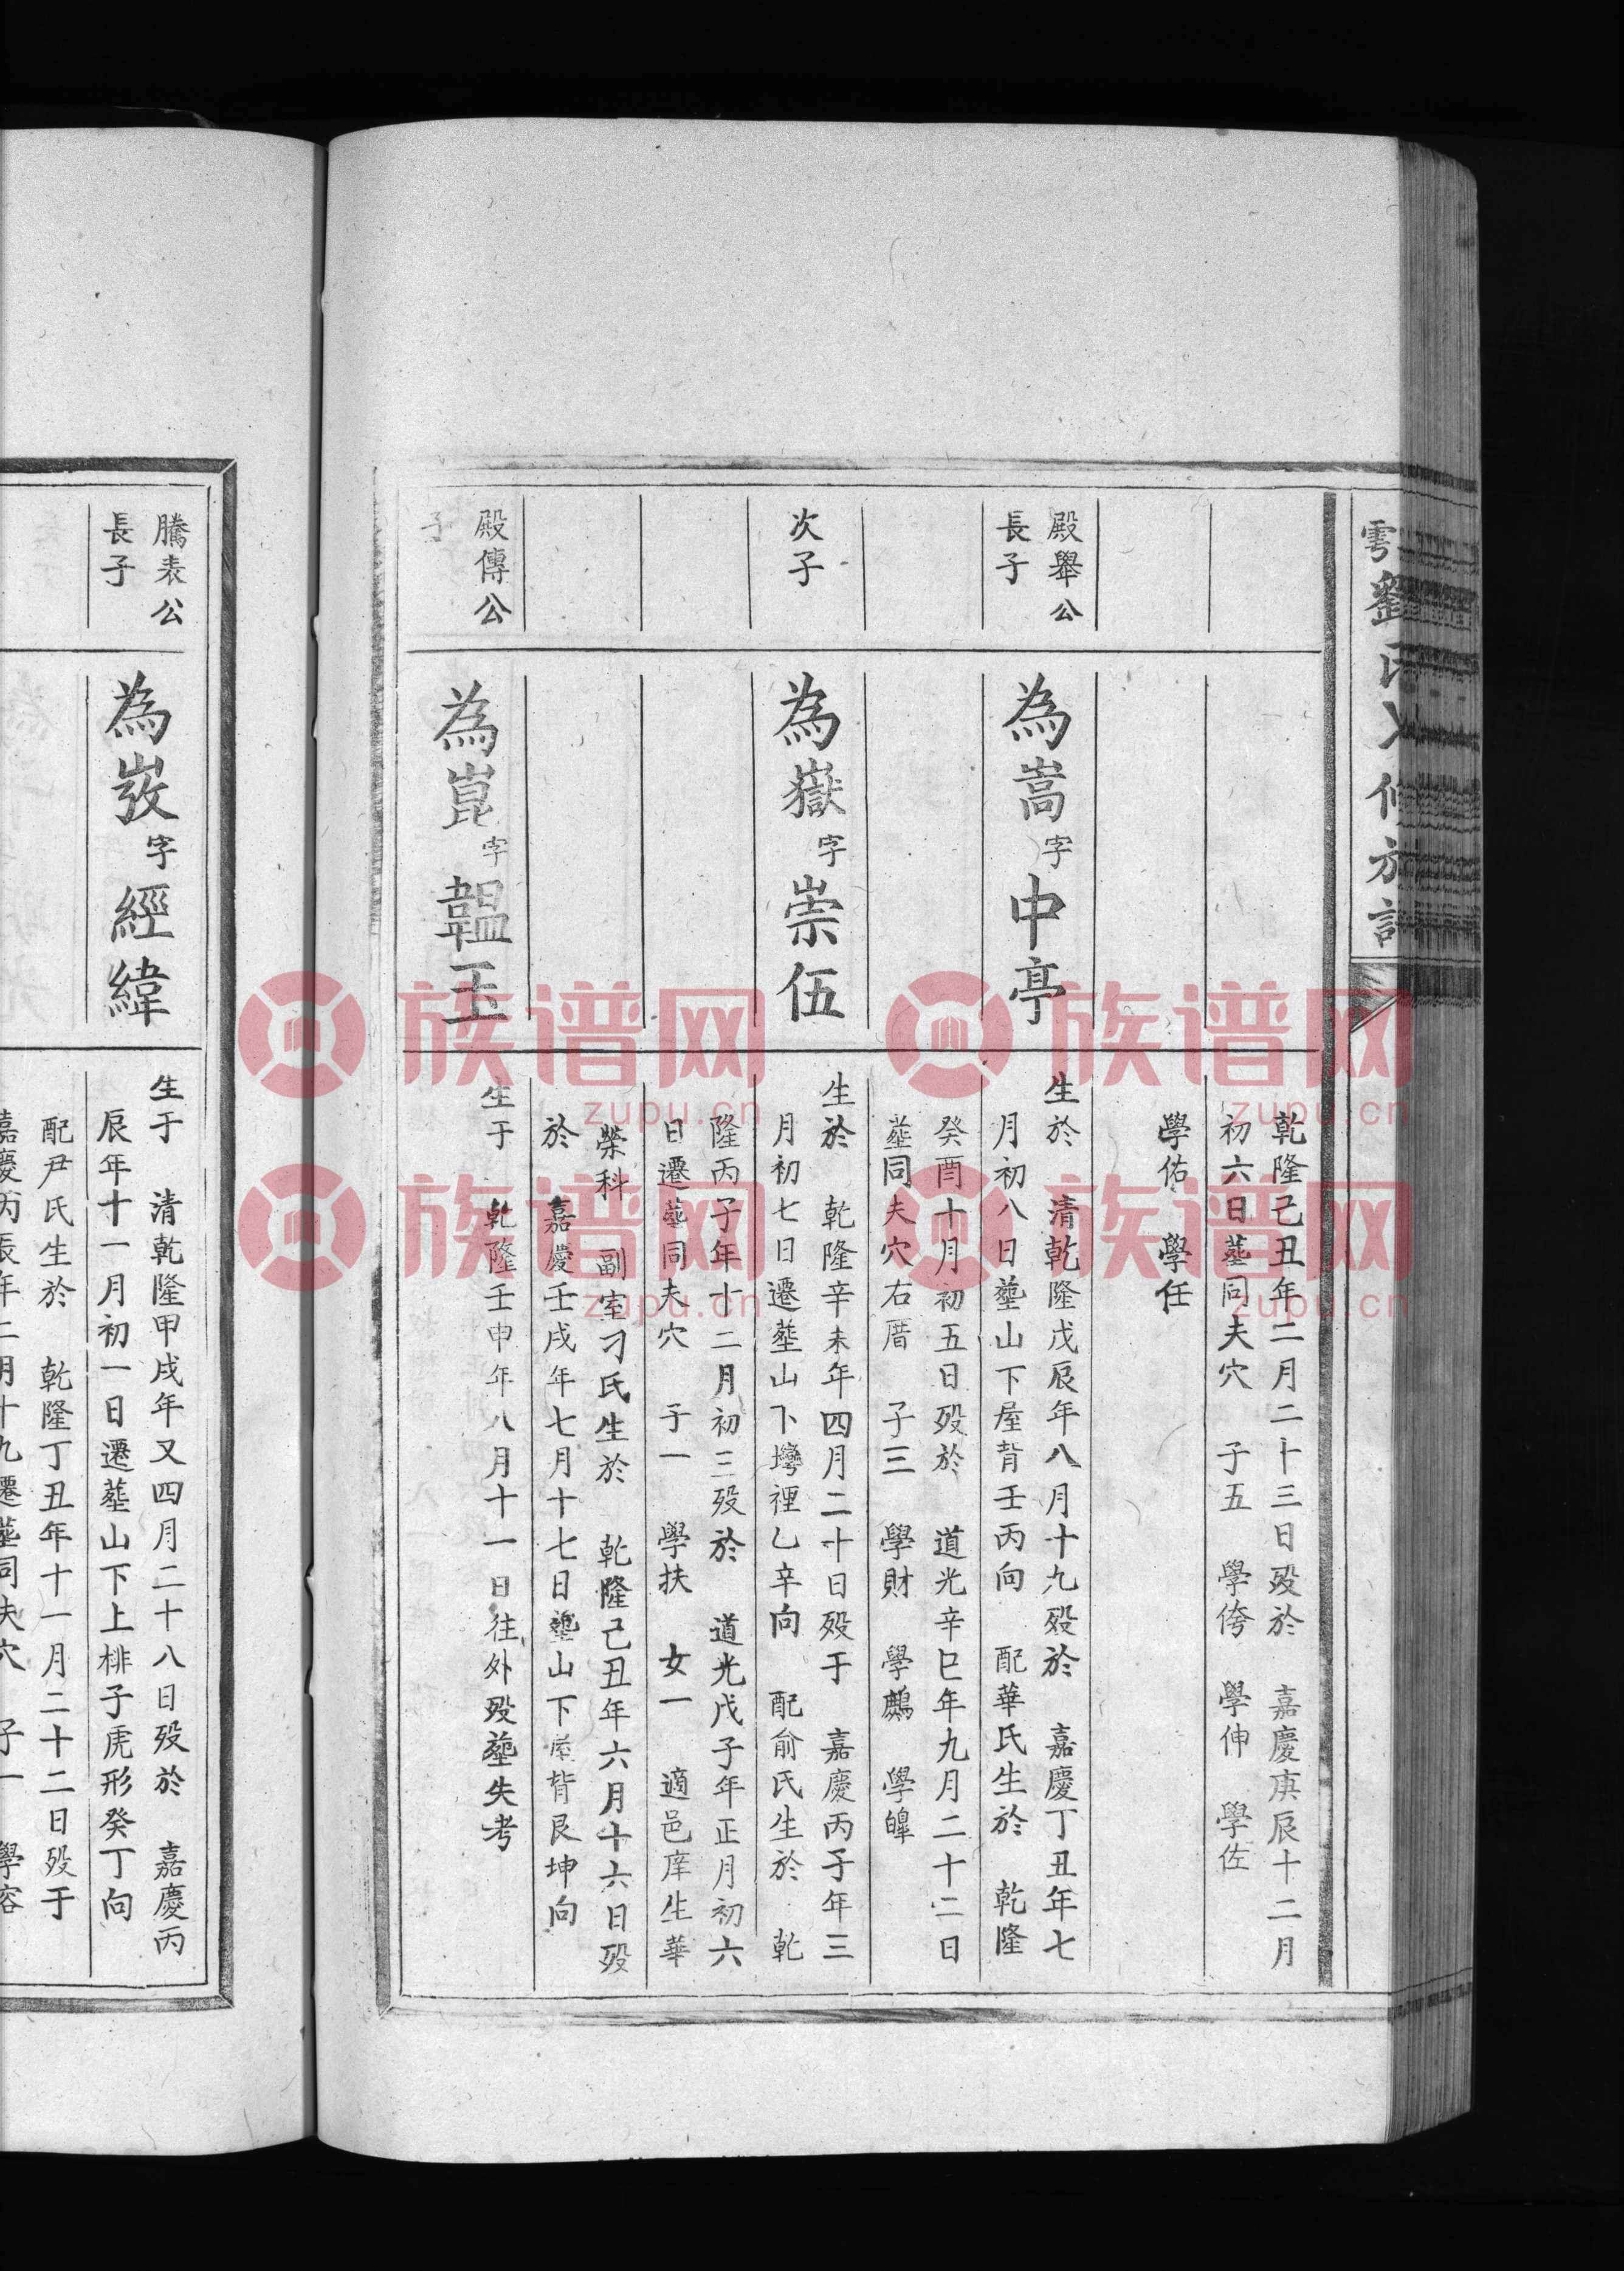 劉氏
乾隆己丑年二月二十三日歿於　嘉慶庚辰十二月
初六日塟同夫穴　子五　學侉　學伸　學佐
學佑　學任
殿舉公
長子
為嵩字中亭
生於　清乾隆戊辰年八月十九歿於　嘉慶丁丑年七
月初八日塟山下屋背壬丙向　配華氏生於　乾隆
癸酉十月初五日歿於　道光辛巳年九月二十二日
塟同夫穴右厝　子三　學財　學鵬　學皡
次子
為嶽字崇伍
生於　乾隆辛未年四月二十日歿于　嘉慶丙子年三
月初七日遷塟山下塆裡乙辛向　配俞氏生於　乾
隆丙子年十二月初三歿於　道光戊子年正月初六
日遷塟同夫穴　子一　學扶　女一　適邑庠生華
榮科　副室刁氏生於　乾隆己丑年六月十六日歿
於　嘉慶壬戌年七月十七日塟山下屋背艮坤向
殿傳公
子
為崑字韞玉
生于　乾隆壬申年八月十一日往外歿塟失考
騰表公
長子
為峧字經緯
生于　清乾隆甲戌年又四月二十八日歿於　嘉慶丙
辰年十一月初一日遷塟山下上排子虎形癸丁向
配尹氏生於　乾隆丁丑年十一月二十二日歿于
嘉慶丙辰年二月十九遷塟同夫穴　子一　學容
族谱网
zupu.cn
族谱网
zupu.cn
族谱网
zupu.cn
族谱网
zupu.cn